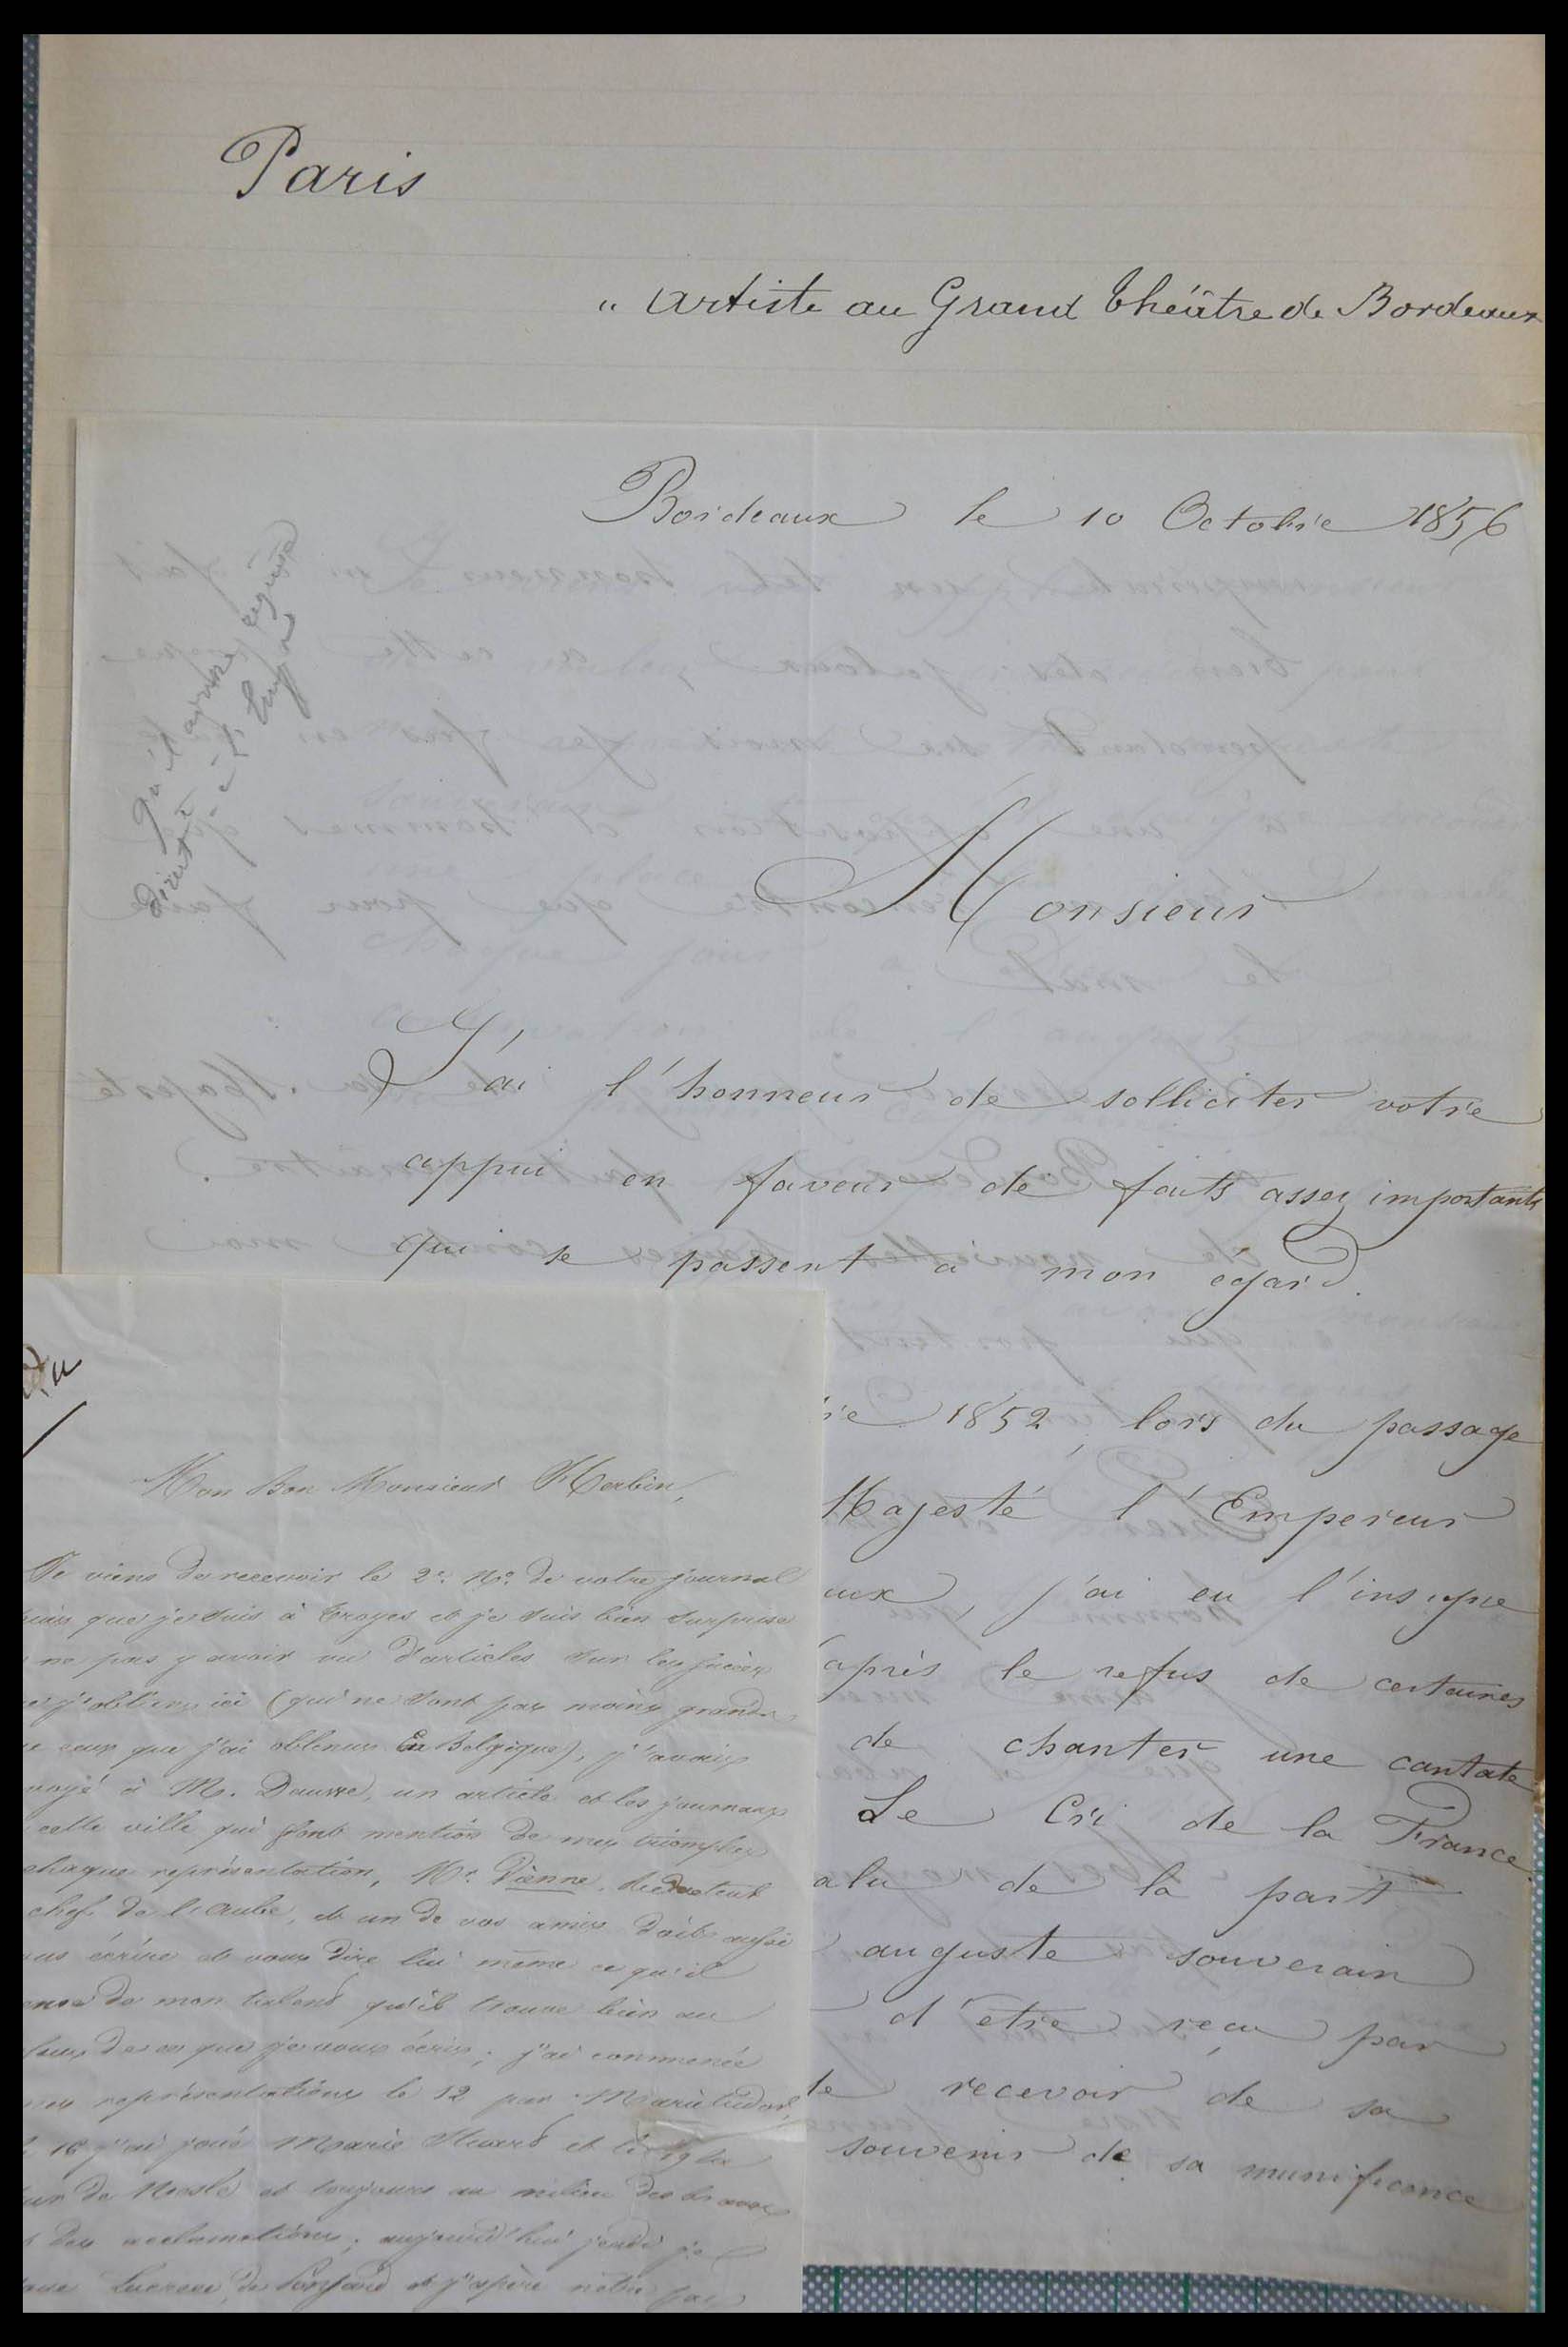 Paris
" Artiste au Grand Théâtre de Bordeaux
Bordeaux le 10 Octobre 1856
Monsieur
J'ai l'honneur de solliciter votre
appui en faveur de faits assez importants
qui se passent à mon égard.
1852, lors du passage
Majesté l'Empereur
aux, j'ai eu l'insigne
après le refus de certaines
de chanter une cantate
Le Cri de la France
de la part
auguste souverain
d'être reçu par
recevoir de sa
souvenir de sa munificence
Mon Bon Monsieur
Je viens de recevoir le 2e. No. de votre journal
que je suis à Troyes et je suis bien surprise
ne pas y avoir vu d'articles sur les succès
j'obtiens ici (qui ne sont pas moins grands
ceux que j'ai obtenus En Belgique), j'avais
à Mr. un article et les journaux
cette ville qui font mention de mes triomphes
chaque représentation, Mr. Vienne, Rédacteur
chef de l'aube, et un de vos amis doit aussi
écrire et vous dire lui même ce qu'il
de mon talent qu'il trouve bien au
de ce que je vous écris; j'ai commencé
mes représentations le 12 par Marie Tudor,
16 j'ai joué Marie Stuard et
de Nesle et toujours au milieu des bravos
des acclamations; aujourd'hui jeudi je
Lucrece et j'espère